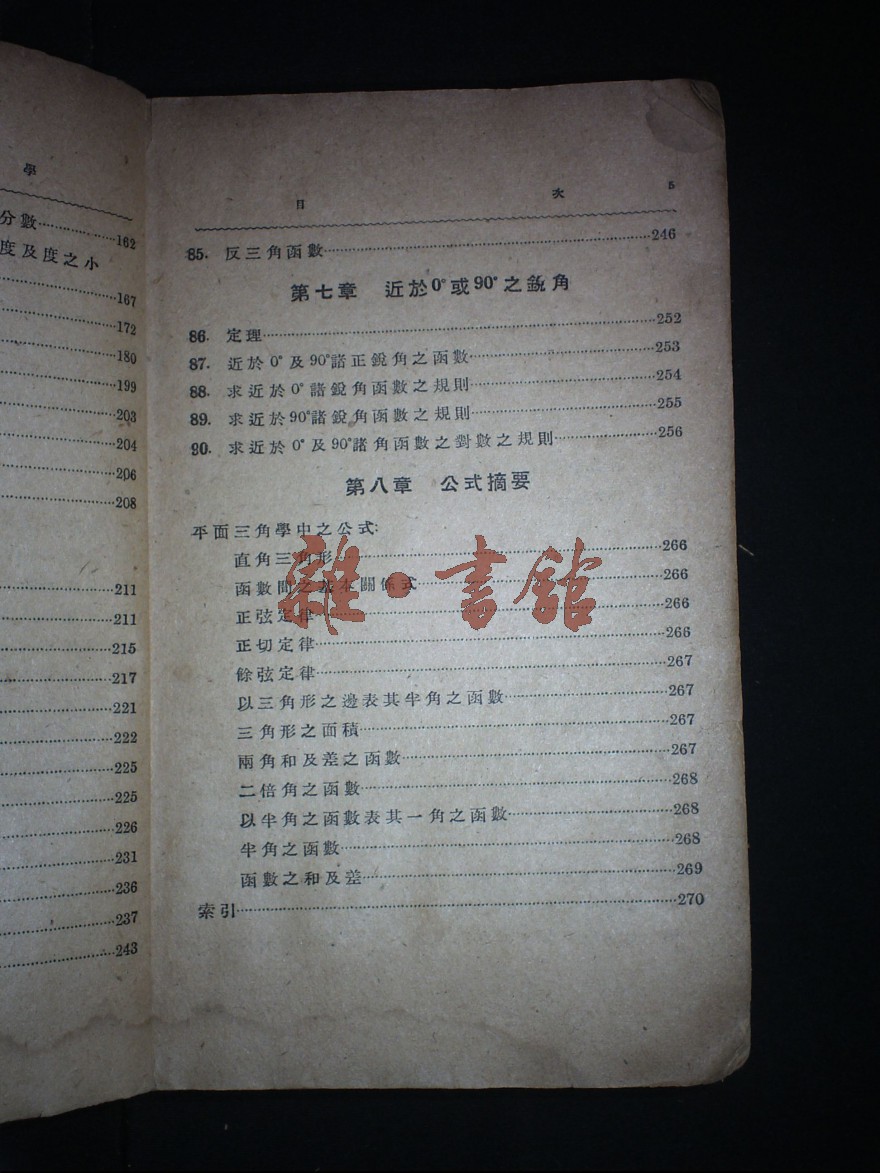 學
分數……162
度及度之小
……167
……172
……180
……199
……203
……204
……206
……208
……211
……211
……215
……217
……221
……222
……225
……225
……226
……231
……236
……237
……243
目 次 5
85. 反三角函數……246
第七章 近於0°或90°之銳角
86. 定理……252
87. 近於0°及90°諸正銳角之函數……253
88. 求近於0°諸銳角函數之規則……254
89. 求近於90°諸銳角函數之規則……255
90. 求近於0°及90°諸角函數之對數之規則……256
第八章 公式摘要
平面三角學中之公式:
直角三角形……266
函數間之基本關係式……266
正弦定律……266
正切定律……266
餘弦定律……267
以三角形之邊表其半角之函數……267
三角形之面積……267
兩角和及差之函數……267
二倍角之函數……268
以半角之函數表其一角之函數……268
半角之函數……268
函數之和及差……269
索引……270
雜·書館